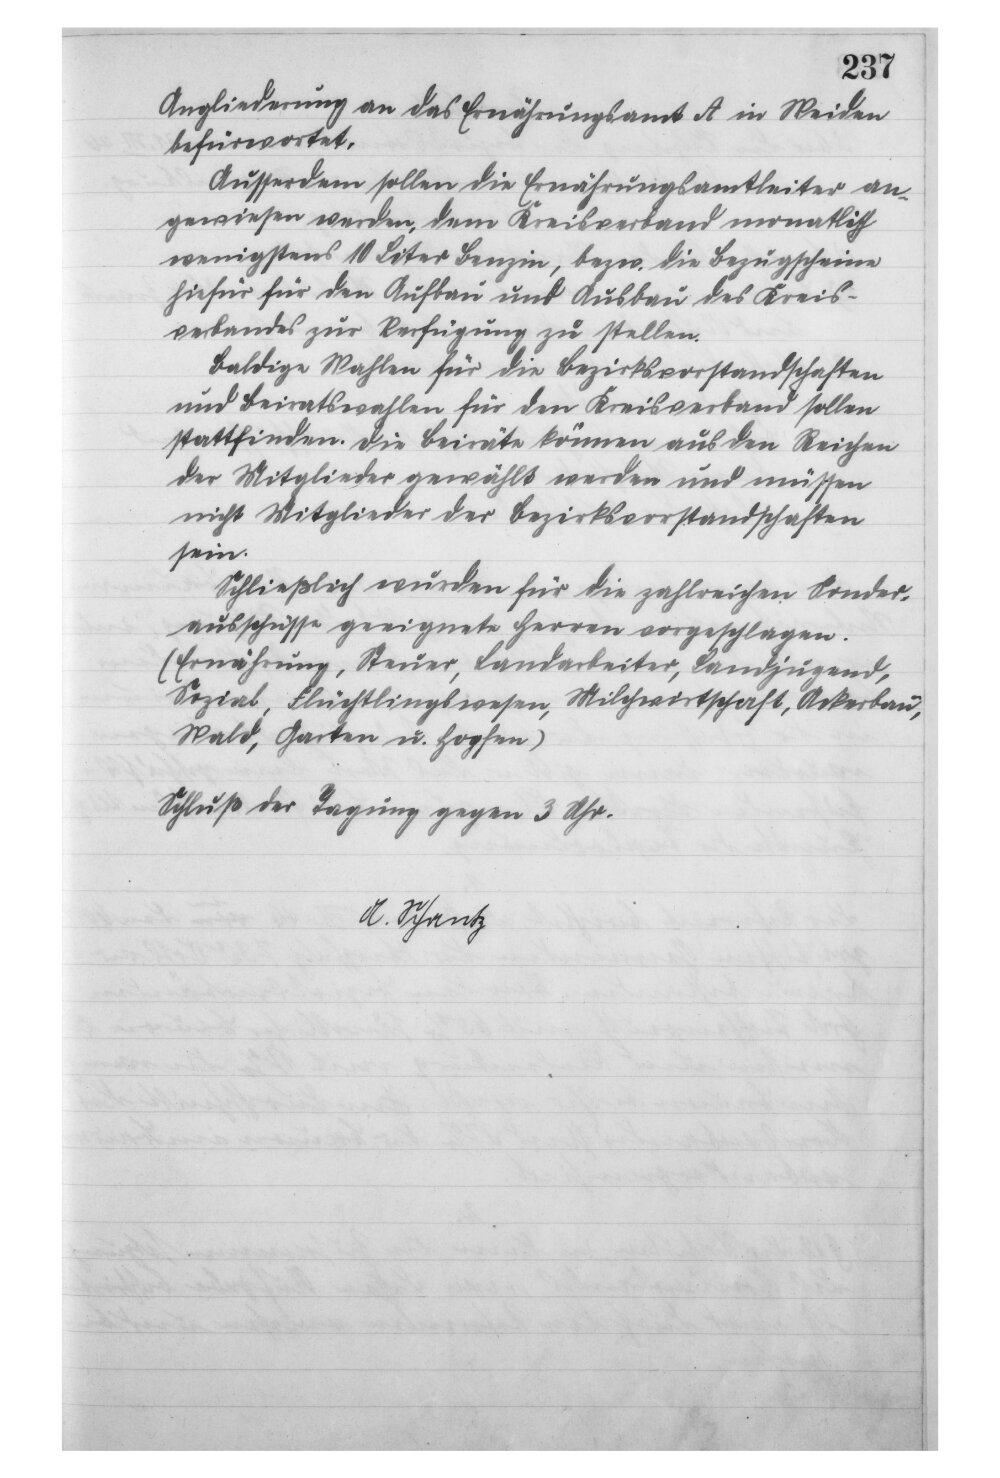 237
Angliederung an das Ernährungsamt A in Weiden
befürwortet.
Ausserdem sollen die Ernährungsamtleiter an-
gewiesen werden, dem Kreisverband monatlich
wenigstens 10 Liter Benzin, bezw. die Bezugscheine
hiefür für den Aufbau und Ausbau des Kreis-
verbandes zur Verfügung zu stellen.
Baldige Wahlen für die Bezirksvorstandschaften
und Beiratswahlen für den Kreisverband sollen
stattfinden. Die Beiräte können aus den Reichen
der Mitglieder gewählt werden und müssen
nicht Mitglieder der Bezirksvorstandschaften
sein.
Schließlich wurden für die zahlreichen Sonder-
ausschüsse geeignete Herren vorgeschlagen.
(Ernährung, Steuer, Landarbeiter, Landjugend,
Sozial, Flüchtlingswesen, Milchwirtschaft, Ackerbau,
Wald, Garten u. Hopfen)
Schluß der Tagung gegen 3 Uhr.
A. Schantz